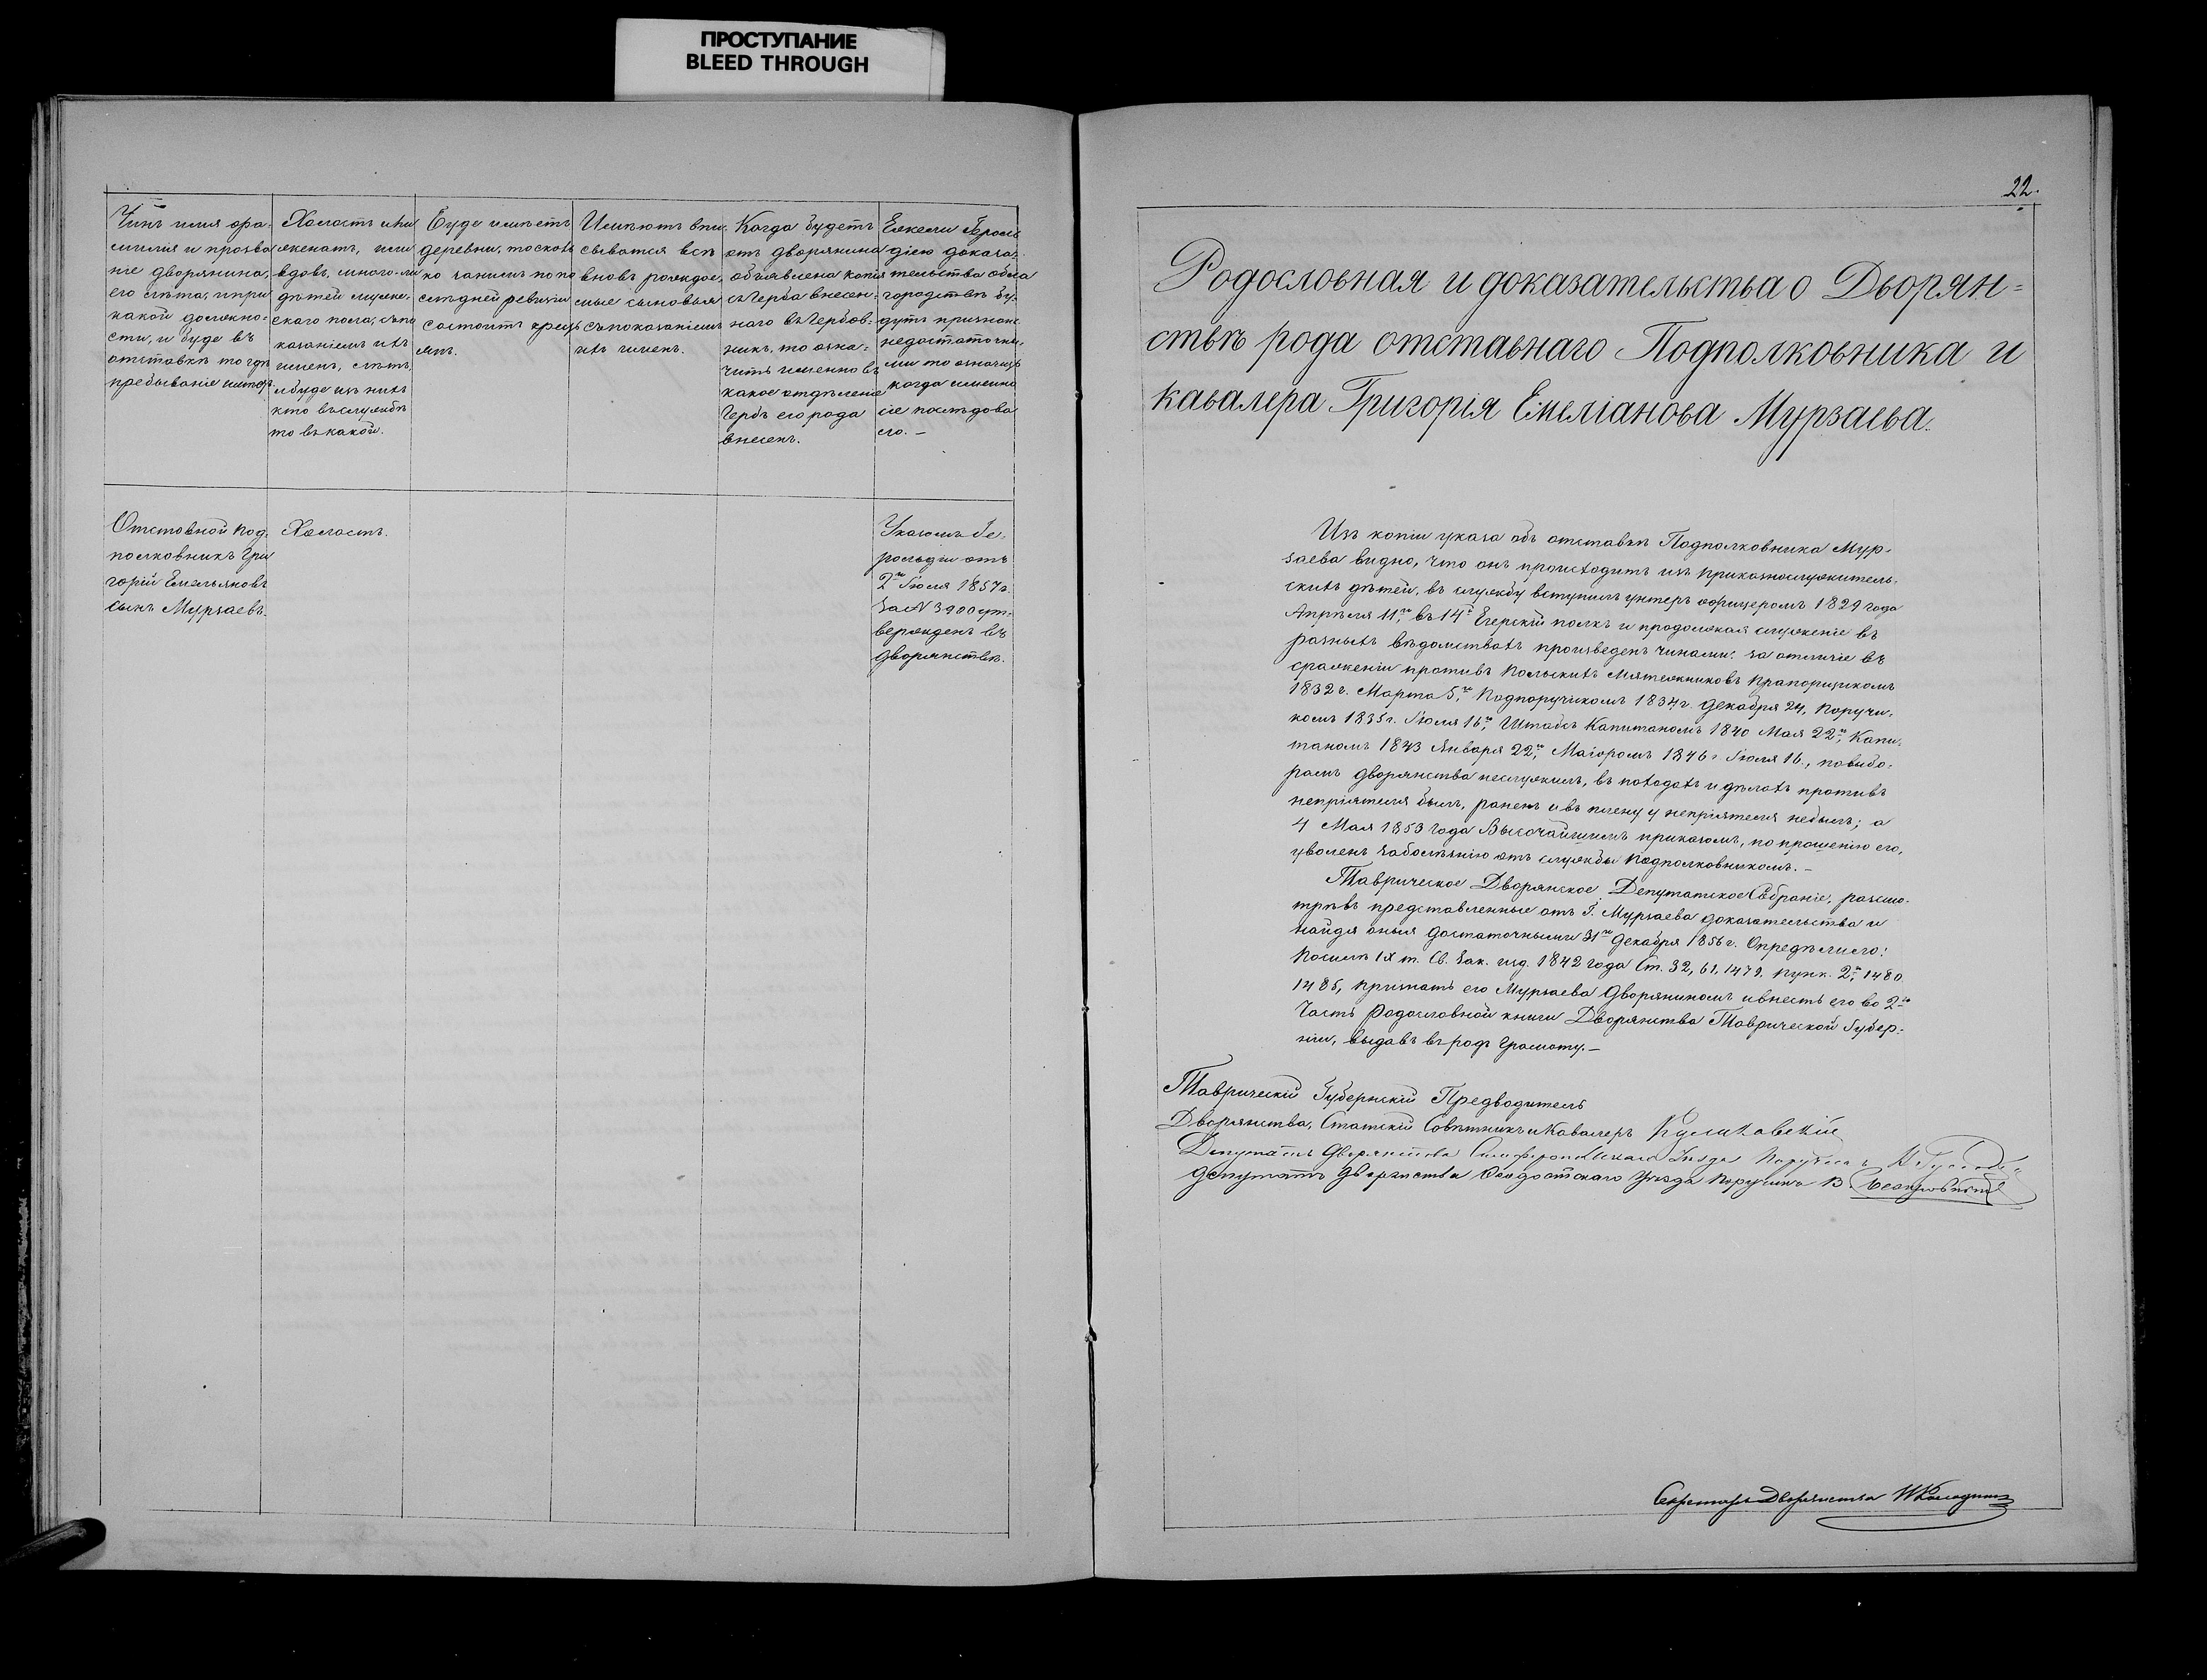 ПРОСТУПАНИЕ
BLEED THROUGH
Чинъ имя фа-
милія и прозва
ніе дворянина,
его лѣта, и при
какой должно-
сти, и буде въ
отставкѣ то гдѣ
пребываніе имѣ
Холостъ или
женатъ, или
вдовъ, много-ли
дѣтей муже-
скаго пола, съ по
казаніемъ ихъ
именъ, лѣтъ,
и буде изъ нихъ
кто въ службѣ
то въ какой.
Буде имѣетъ
деревни, то сколь
ко за нимъ по по
слѣдней ревизіи
состоитъ крест
янъ.
Имѣютъ впи-
сыватся всѣ
вновь рождае-
мые сыновья
съ показаніемъ
ихъ именъ.
Когда будетъ
отъ дворянина
объявлена копія
съ Герба внесен-
наго въ Гербов-
никъ, то озна-
чить именно въ
какое отдѣленіе
Гербъ его рода
внесенъ.
Ежели Героль
діею доказа-
тельства о бла
городствѣ бу-
дутъ признан
недостаточны
ми то означить
когда именно
сіе послѣдова
ло. —
Отставной Под-
полковникъ Гри
горій Емельяновъ
сынъ Мурзаевъ.
Холостъ.
Указомъ Ге-
рольдіи отъ
2го Іюля 1857 г.
за N 3900 ут-
вержденъ въ
дворянствѣ.
22.
Родословная и доказательства о Дворян=
ствѣ рода отставнаго Подполковника и
кавалера Григорія Емеліанова Мурзаева.
Изъ копіи указа объ отставкѣ Подполковника Мур-
заева видно, что онъ происходитъ изъ приказнослужитель-
скихъ дѣтей, въ службу вступилъ унтеръ офицеромъ 1829 года
Апрѣля 11го, въ 14й Егерскій полкъ и продолжая служеніе въ
разныхъ вѣдомствахъ произведенъ чинами: за отличіе въ
сраженіи противъ Польскихъ мятежниковъ Прапорщикомъ
1832 г. Марта 5го, Подпоручикомъ 1834 г. Декабря 24, Поручи-
комъ 1835 г. Іюля 16го, Штабсъ Капитаномъ 1840 Мая 22го, Капи-
таномъ 1843 Января 22го, Маіоромъ 1846 г. Іюля 16, по выбо-
рамъ дворянства неслужилъ, въ походахъ и дѣлахъ противъ
непріятеля былъ, раненъ и въ плену у непріятеля небылъ; а
4 Мая 1853 года Высочайшимъ приказомъ, по прошенію его,
уволенъ за болѣзнію отъ службы Подполковникомъ. —
Таврическое Дворянское Депутатское Собраніе, разсмо-
трѣвъ представленные отъ Г. Мурзаева доказательства и
найдя оныя достаточными 31го Декабря 1856 г. Опредѣлило:
По силѣ IX т. Св. Зак. изд. 1842 года Ст. 32, 61, 1479. пунк. 2й, 1480
1485, признать его Мурзаева Дворяниномъ и внесть его во 2ю
Часть Родословной книги Дворянства Таврической Губер-
ніи, выдавъ въ родъ Грамоту. —
Таврическій Губернскій Предводитель
Дворянства, Статскій Совѣтникъ и Кавалеръ
Депутатъ Дворянства Симферопольскаго Уѣзда Поручикъ
Депутатъ Дворянства Феодосійскаго Уѣзда Поручикъ В.
Секретарь Дворянства